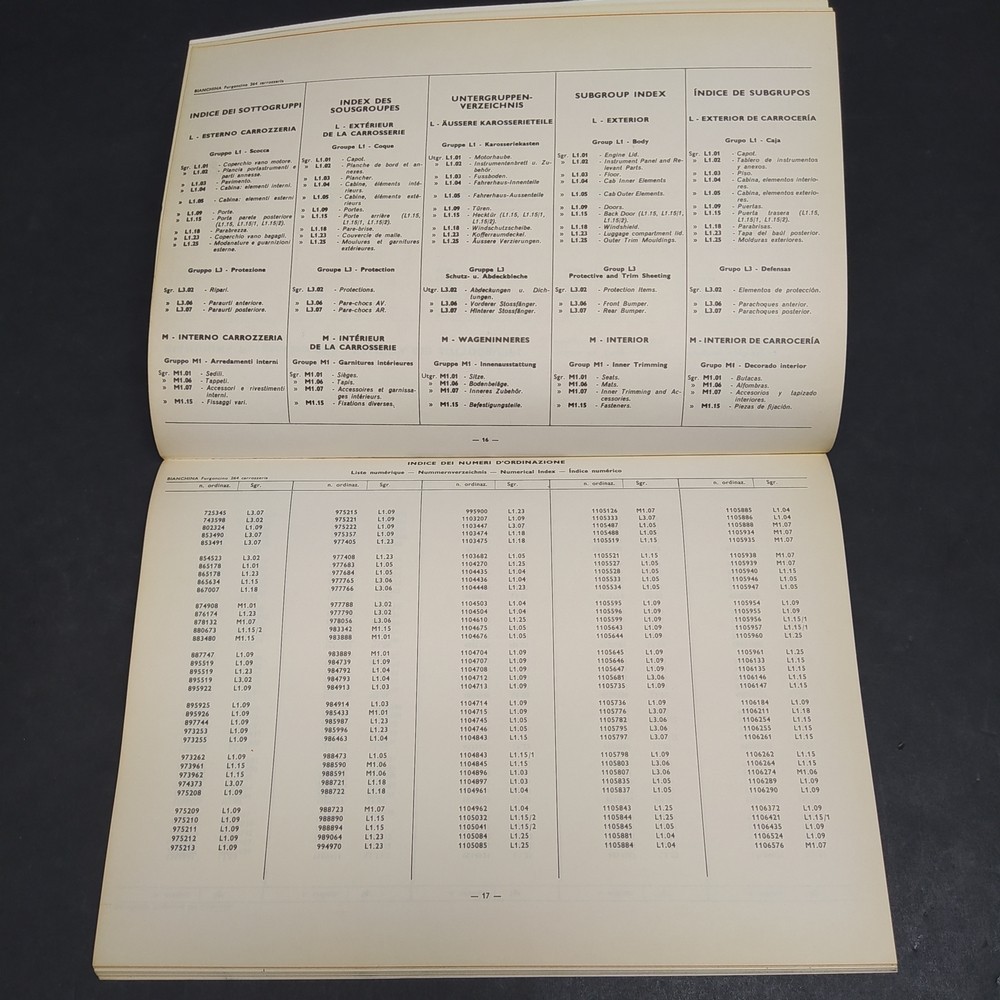 BIANCHINA Furgoncino 264 carrosserie
INDICE DEI SOTTOGRUPPI
L - ESTERNO CARROZZERIA
Gruppo L1 - Scocca
Sgr. L1.01 - Coperchio vano motore.
» L1.02 - Plancia portastrumenti e
parti annesse.
» L1.03 - Pavimento.
» L1.04 - Cabina: elementi interni.
» L1.05 - Cabina: elementi esterni
» L1.09 - Porte.
» L1.15 - Porta parete posteriore
(L1.15, L1.15/1, L1.15/2).
» L1.18 - Parabrezza.
» L1.23 - Coperchio vano bagagli.
» L1.25 - Modanature e guarnizioni
esterne.
Gruppo L3 - Protezione
Sgr. L3.02 - Ripari.
» L3.06 - Paraurti anteriore.
» L3.07 - Paraurti posteriore.
M - INTERNO CARROZZERIA
Gruppo M1 - Arredamenti interni
Sgr. M1.01 - Sedili.
» M1.06 - Tappeti.
» M1.07 - Accessori e rivestimenti
interni.
» M1.15 - Fissaggi vari.
INDEX DES
SOUSGROUPES
L - EXTÉRIEUR
DE LA CARROSSERIE
Groupe L1 - Coque
Sgr. L1.01 - Capot.
» L1.02 - Planche de bord et an-
nexes.
» L1.03 - Plancher.
» L1.04 - Cabine, éléments inté-
rieurs.
» L1.05 - Cabine, éléments exté-
rieurs
» L1.09 - Portes.
» L1.15 - Porte arrière (L1.15,
L1.15/1, L1.15/2).
» L1.18 - Pare-brise.
» L1.23 - Couvercle de malle.
» L1.25 - Moulures et garnitures
extérieures.
Groupe L3 - Protection
Sgr. L3.02 - Protections.
» L3.06 - Pare-chocs AV.
» L3.07 - Pare-chocs AR.
M - INTÉRIEUR
DE LA CARROSSERIE
Groupe M1 - Garnitures intérieures
Sgr. M1.01 - Sièges.
» M1.06 - Tapis.
» M1.07 - Accessoires et garnissa-
ges intérieurs.
» M1.15 - Fixations diverses.
UNTERGRUPPEN-
VERZEICHNIS
L - ÄUSSERE KAROSSERIETEILE
Gruppe L1 - Karosseriekasten
Utgr. L1.01 - Motorhaube.
» L1.02 - Instrumentenbrett u. Zu-
behör.
» L1.03 - Fussboden.
» L1.04 - Fahrerhaus-Innenteile
» L1.05 - Fahrerhaus-Aussenteile
» L1.09 - Türen.
» L1.15 - Hecktür (L1.15, L1.15/1,
L1.15/2).
» L1.18 - Windschutzscheibe.
» L1.23 - Kofferraumdeckel.
» L1.25 - Äussere Verzierungen.
Gruppe L3
Schutz- u. Abdeckbleche
Utgr. L3.02 - Abdeckungen u. Dich-
tungen.
» L3.06 - Vorderer Stossfänger.
» L3.07 - Hinterer Stossfänger.
M - WAGENINNERES
Gruppe M1 - Innenausstattung
Utgr. M1.01 - Sitze.
» M1.06 - Bodenbeläge.
» M1.07 - Inneres Zubehör.
» M1.15 - Befestigungsteile.
SUBGROUP INDEX
L - EXTERIOR
Group L1 - Body
Sgr. L1.01 - Engine Lid.
» L1.02 - Instrument Panel and Re-
levant Parts.
» L1.03 - Floor.
» L1.04 - Cab Inner Elements
» L1.05 - Cab Outer Elements.
» L1.09 - Doors.
» L1.15 - Back Door (L1.15, L1.15/1,
L1.15/2).
» L1.18 - Windshield.
» L1.23 - Luggage compartment lid.
» L1.25 - Outer Trim Mouldings.
Group L3
Protective and Trim Sheeting
Sgr. L3.02 - Protection Items.
» L3.06 - Front Bumper.
» L3.07 - Rear Bumper.
M - INTERIOR
Group M1 - Inner Trimming
Sgr. M1.01 - Seats.
» M1.06 - Mats.
» M1.07 - Inner Trimming and Ac-
cessories.
» M1.15 - Fasteners.
ÍNDICE DE SUBGRUPOS
L - EXTERIOR DE CARROCERÍA
Grupo L1 - Caja
Sgr. L1.01 - Capot.
» L1.02 - Tablero de instrumentos
y anexos.
» L1.03 - Piso.
» L1.04 - Cabina, elementos interio-
res.
» L1.05 - Cabina, elementos exterio-
res.
» L1.09 - Puertas.
» L1.15 - Puerta trasera (L1.15,
L1.15/1, L1.15/2).
» L1.18 - Parabrisas.
» L1.23 - Tapa del baúl posterior.
» L1.25 - Molduras exteriores.
Grupo L3 - Defensas
Sgr. L3.02 - Elementos de protección.
» L3.06 - Parachoques anterior.
» L3.07 - Parachoques posterior.
M - INTERIOR DE CARROCERÍA
Grupo M1 - Decorado interior
Sgr. M1.01 - Butacas.
» M1.06 - Alfombras.
» M1.07 - Accesorios y tapizado
interiores.
» M1.15 - Piezas de fijación.
— 16 —
INDICE DEI NUMERI D'ORDINAZIONE
Liste numérique — Nummernverzeichnis — Numerical Index — Índice numérico
BIANCHINA Furgoncino 264 carrosserie
n. ordinaz. Sgr. n. ordinaz. Sgr. n. ordinaz. Sgr. n. ordinaz. Sgr. n. ordinaz. Sgr.
725345 L3.07
743598 L3.02
802324 L1.09
853490 L3.07
853491 L3.07
854523 L3.02
865178 L1.01
865178 L1.23
865634 L1.15
867007 L1.18
874908 M1.01
876174 L1.23
878132 M1.07
880673 L1.15/2
883480 M1.15
887747 L1.09
895519 L1.09
895519 L1.23
895519 L3.02
895922 L1.09
895925 L1.09
895926 L1.09
897744 L1.09
973253 L1.09
973255 L1.09
973262 L1.09
973961 L1.15
973962 L1.15
974373 L3.07
975208 L1.09
975209 L1.09
975210 L1.09
975211 L1.09
975212 L1.09
975213 L1.09
975215 L1.09
975221 L1.09
975222 L1.09
975357 L1.09
977405 L1.23
977408 L1.23
977683 L1.05
977684 L1.05
977765 L3.06
977766 L3.06
977788 L3.02
977790 L3.02
978056 L3.06
983342 M1.15
983888 M1.01
983889 M1.01
984739 L1.09
984792 L1.04
984793 L1.04
984913 L1.03
984914 L1.03
985433 M1.01
985987 L1.23
985996 L1.23
986463 L1.04
988473 L1.05
988590 M1.06
988591 M1.06
988721 L1.18
988722 L1.18
988723 M1.07
988890 L1.15
988894 L1.15
989064 L1.23
994970 L1.23
995900 L1.23
1103207 L1.09
1103447 L3.07
1103474 L1.18
1103475 L1.18
1103682 L1.05
1104270 L1.25
1104435 L1.04
1104436 L1.04
1104448 L1.23
1104503 L1.04
1104504 L1.04
1104610 L1.25
1104675 L1.05
1104676 L1.05
1104704 L1.09
1104707 L1.09
1104708 L1.09
1104712 L1.09
1104713 L1.09
1104714 L1.09
1104715 L1.09
1104745 L1.05
1104746 L1.05
1104843 L1.15
1104843 L1.15/1
1104845 L1.15
1104896 L1.03
1104897 L1.03
1104961 L1.04
1104962 L1.04
1105032 L1.15/2
1105041 L1.15/2
1105084 L1.25
1105085 L1.25
1105126 M1.07
1105333 L3.07
1105487 L1.05
1105488 L1.05
1105519 L1.15
1105521 L1.15
1105527 L1.05
1105528 L1.05
1105533 L1.05
1105534 L1.05
1105595 L1.09
1105596 L1.09
1105599 L1.09
1105643 L1.09
1105644 L1.09
1105645 L1.09
1105646 L1.09
1105647 L1.09
1105681 L3.06
1105735 L1.09
1105736 L1.09
1105776 L3.07
1105782 L3.06
1105795 L3.06
1105797 L3.07
1105798 L1.09
1105803 L3.06
1105807 L3.06
1105835 L1.05
1105837 L1.05
1105843 L1.25
1105844 L1.25
1105845 L1.05
1105881 L1.04
1105884 L1.04
1105885 L1.04
1105886 L1.04
1105888 M1.07
1105934 M1.07
1105935 M1.07
1105938 M1.07
1105939 M1.07
1105940 L1.15
1105946 L1.05
1105947 L1.05
1105954 L1.09
1105955 L1.09
1105956 L1.15/1
1105957 L1.15/1
1105960 L1.25
1105961 L1.25
1106133 L1.15
1106135 L1.15
1106146 L1.15
1106147 L1.15
1106184 L1.09
1106211 L1.18
1106254 L1.15
1106255 L1.15
1106261 L1.15
1106262 L1.15
1106264 L1.15
1106274 M1.06
1106289 L1.09
1106290 L1.09
1106372 L1.09
1106421 L1.15/1
1106435 L1.09
1106524 L1.09
1106576 M1.07
— 17 —